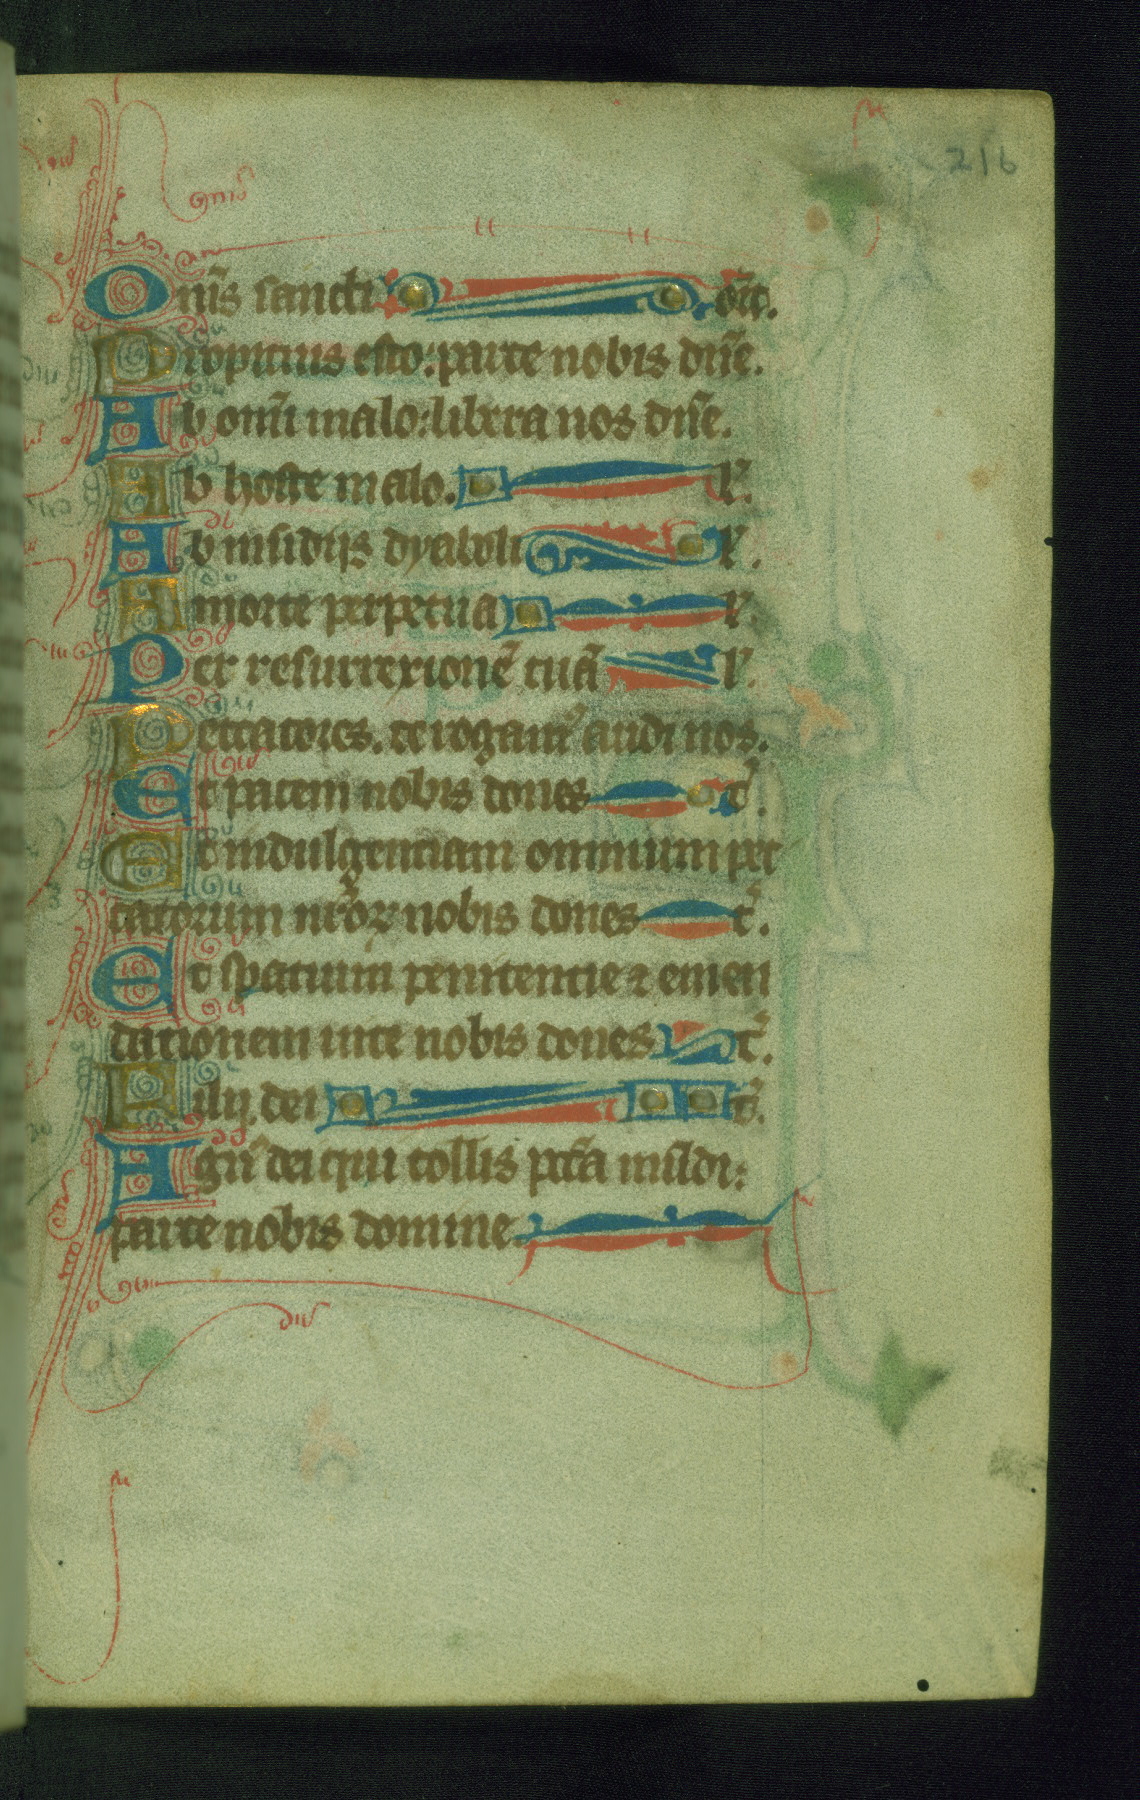 216
Om̄s sancti or̄.
Propicius esto: parce nobis dn̄e.
Ab om̄i malo: libera nos dn̄e.
Ab hoste malo. l'.
Ab insidijs dyaboli l'.
A morte perpetua l'.
Per resurrexionē tuā l'.
Peccatores. te rogam᷒ audi nos.
Et pacem nobis dones t'.
Et indulgentiam omnium pec
catorum nr̄oꝝ nobis dones t'.
Et spatium penitentie ⁊ emen
dationem uite nobis dones t'.
Filij dei t'.
Agn̄ dei qui tollis pctā mūdi:
parce nobis domine.